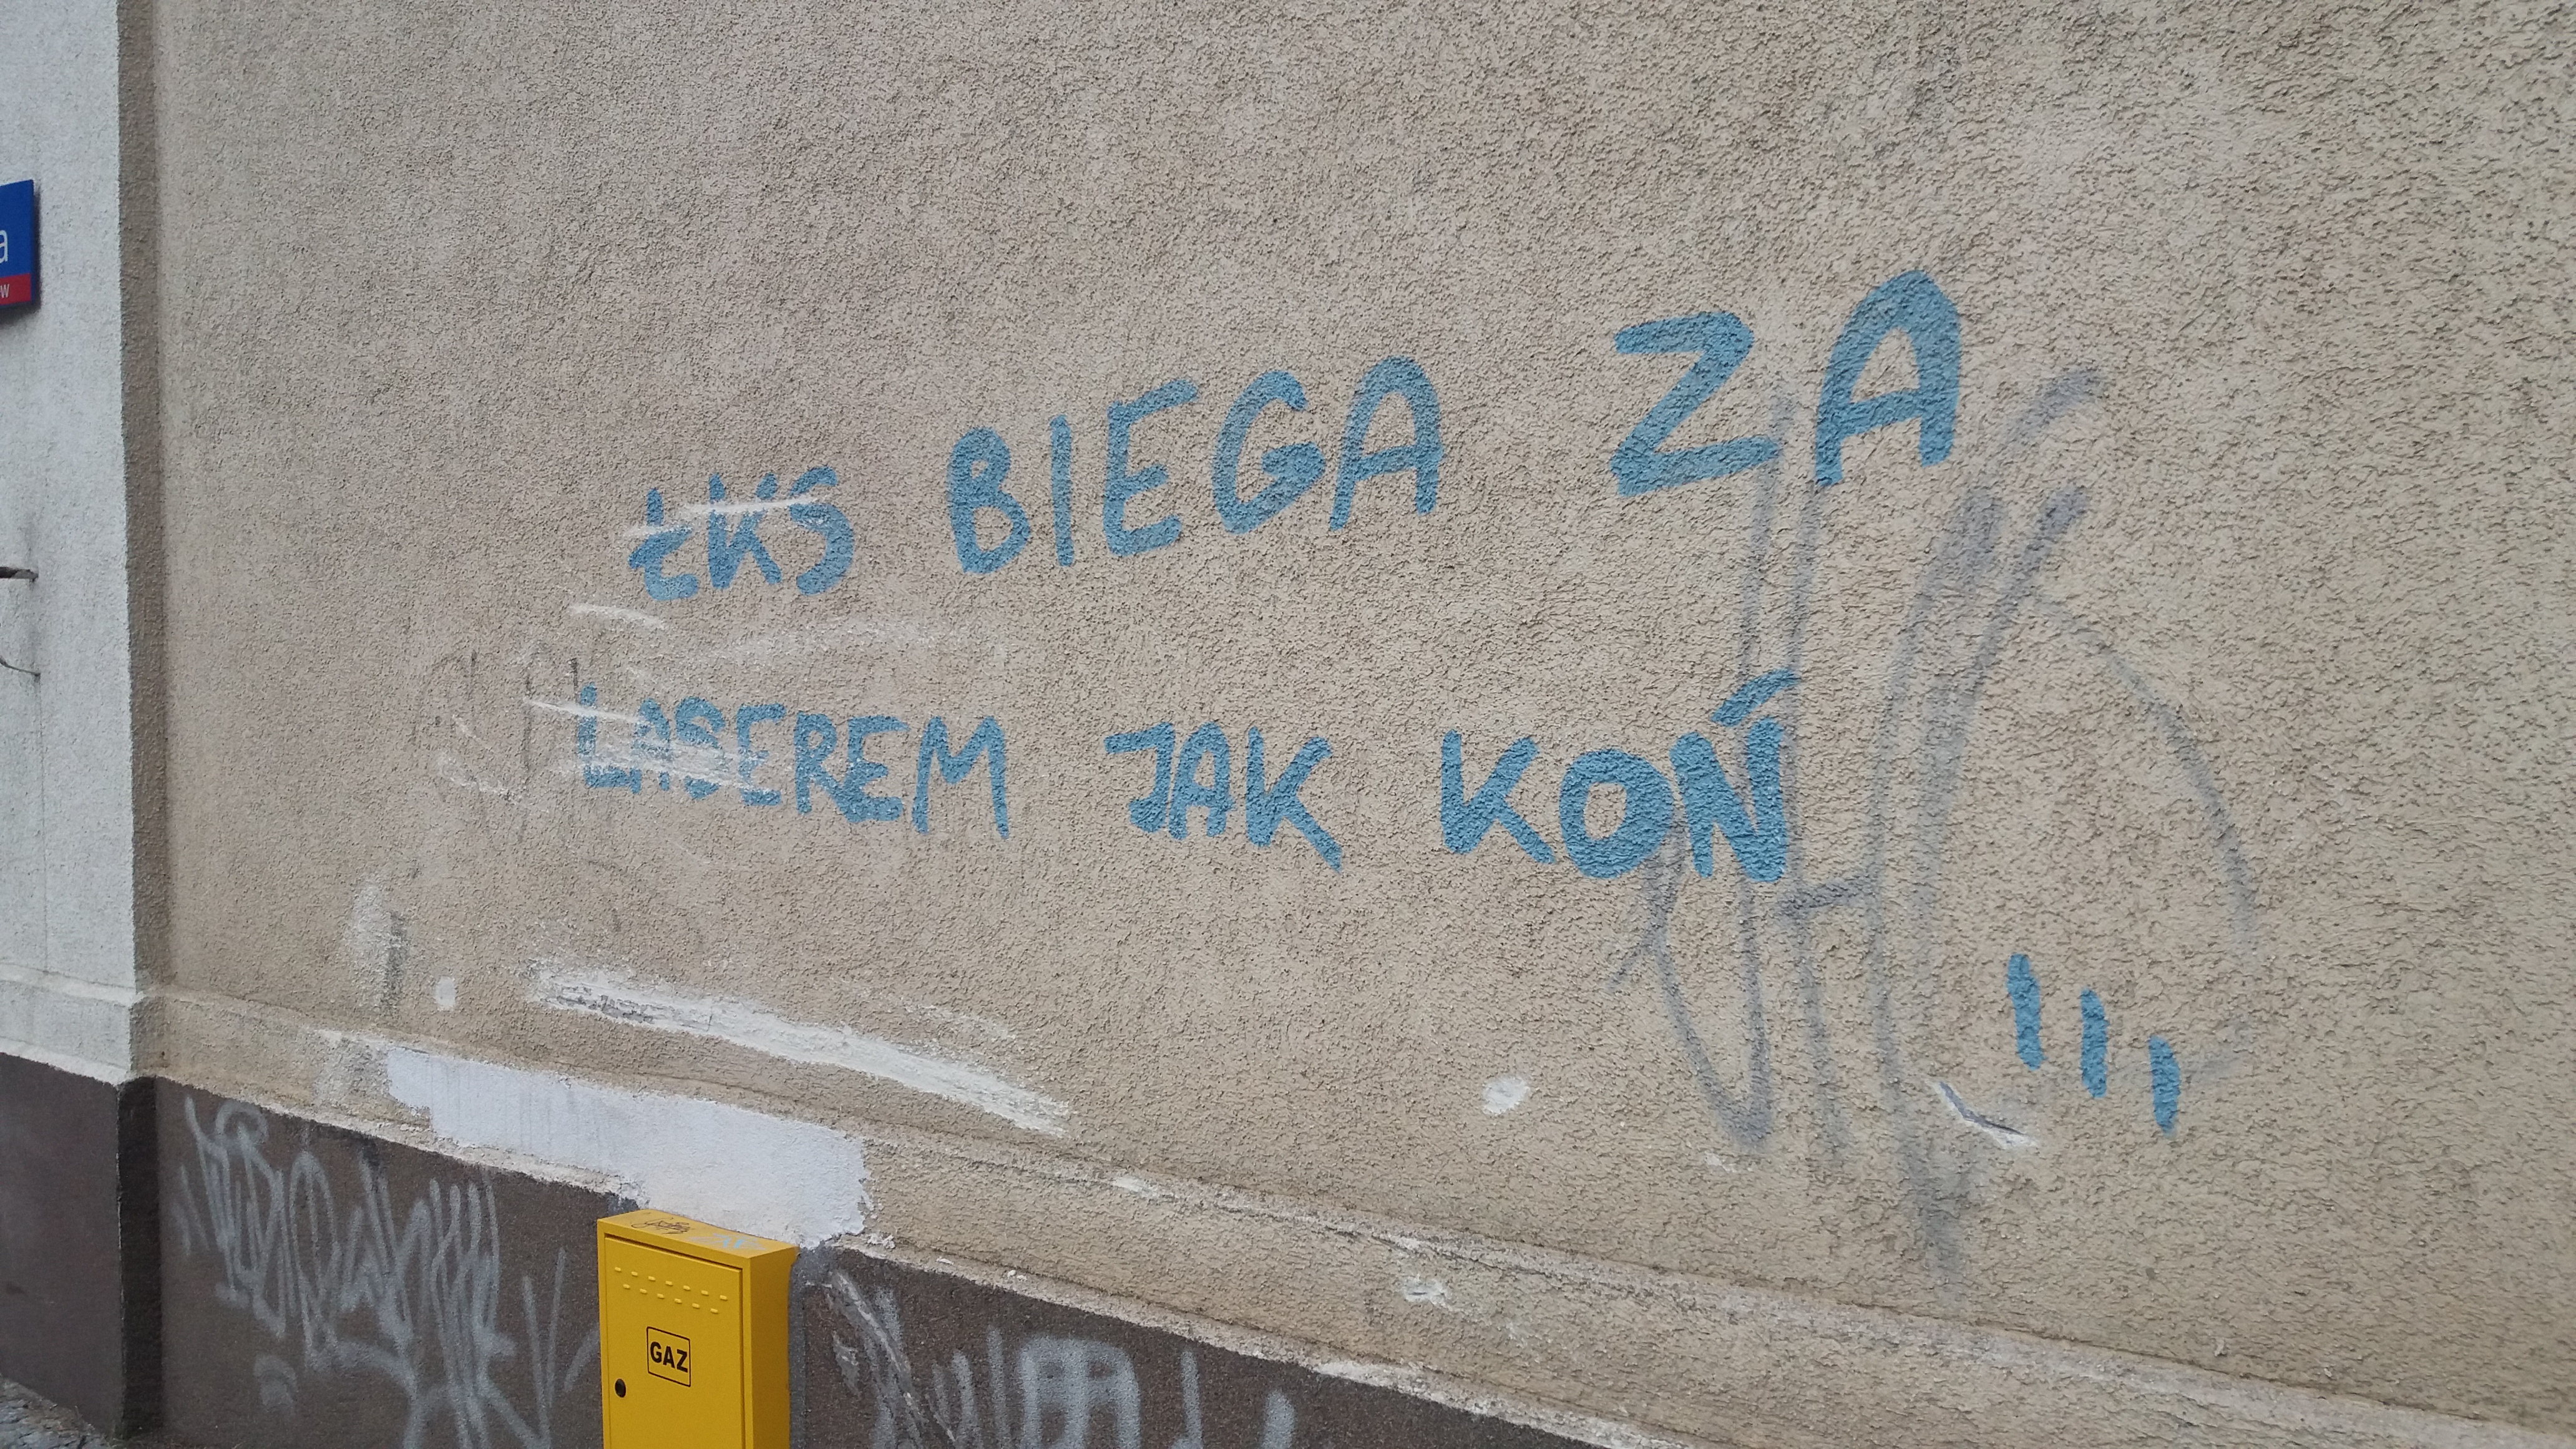 a
w
ŁKS BIEGA ZA
LASEREM JAK KOŃ
GAZ